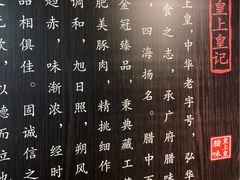 皇上皇记
皇上皇
腊味
上皇，中华老字号，弘华
食之志，承广府腊味
，四海扬名。腊中
金冠臻品，秉典藏工
肥美豚肉，精挑细作
调和，旭日照，朔风
赤，味渐浓，经时
品相俱佳。固诚信之
无欺，以德而立